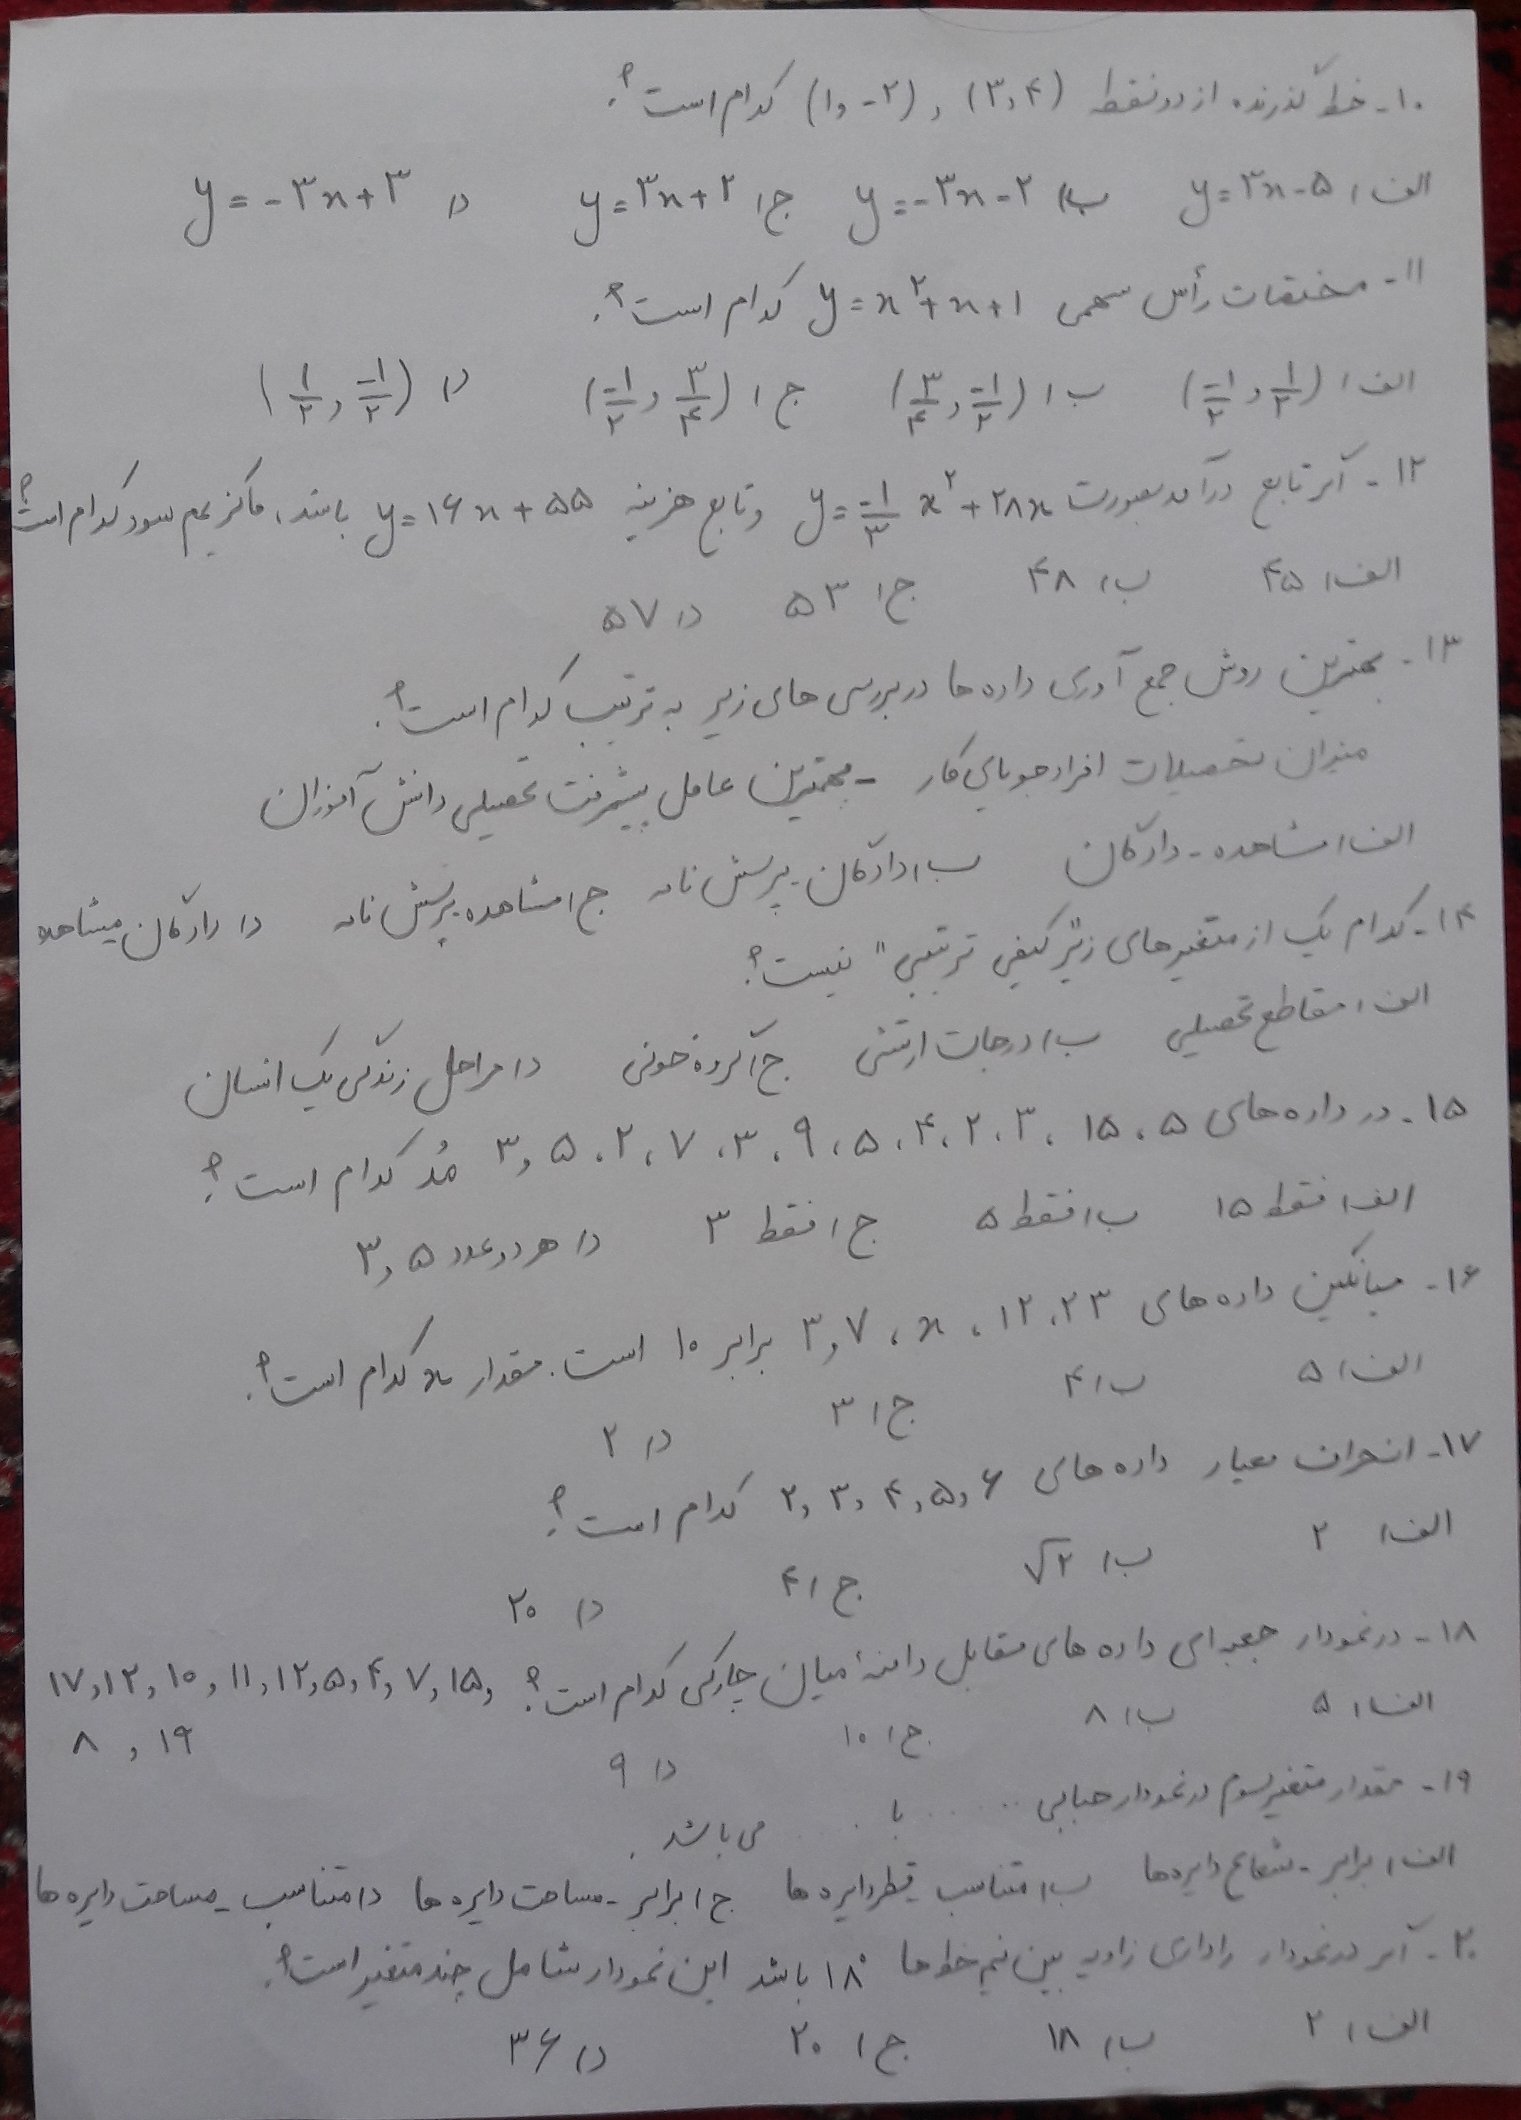 ۱۰- خط گذرنده از دو نقطه (۳,۴) , (۱,-۲) کدام است؟
الف) y=۳x-۵ ب) y=-۳x-۲ ج) y=۳x+۲ د) y=-۳x+۳
۱۱- مختصات رأس سهمی y=x²+x+۱ کدام است؟
الف) (-۱/۲ , ۱/۲) ب) (۳/۴ , -۱/۲) ج) (-۱/۲ , ۳/۴) د) (۱/۲ , -۱/۲)
۱۲- اگر تابع درآمد بصورت y=-۱/۳ x²+۲۸x و تابع هزینه y=۱۶x+۵۵ باشد، ماکزیمم سود کدام است؟
الف) ۴۵ ب) ۴۸ ج) ۵۳ د) ۵۷
۱۳- بهترین روش جمع آوری داده ها در بررسی های زیر به ترتیب کدام است؟
میزان تحصیلات افراد جویای کار - مهمترین عامل پیشرفت تحصیلی دانش آموزان
الف) مشاهده - دادگان ب) دادگان - پرسش نامه ج) مشاهده - پرسش نامه د) دادگان - مشاهده
۱۴- کدام یک از متغیرهای زیر "کیفی ترتیبی" نیست؟
الف) مقاطع تحصیلی ب) درجات ارتشی ج) گروه خونی د) مراحل زندگی یک انسان
۱۵- در داده های ۵، ۱۵، ۳، ۲، ۴، ۵، ۹، ۳، ۷، ۲، ۵ و ۳ مُد کدام است؟
الف) فقط ۱۵ ب) فقط ۵ ج) فقط ۳ د) هر دو عدد ۵ و ۳
۱۶- میانگین داده های ۲۳، ۱۲، x، ۷ و ۳ برابر ۱۰ است. مقدار x کدام است؟
الف) ۵ ب) ۴ ج) ۳ د) ۲
۱۷- انحراف معیار داده های ۶ و ۵ و ۴ و ۳ و ۲ کدام است؟
الف) ۲ ب) √۲ ج) ۴ د) ۲۰
۱۸- در نمودار جعبه ای داده های مقابل دامنهٔ میان چارکی کدام است؟ ۱۷, ۱۲, ۱۰, ۱۱, ۱۲, ۵, ۴, ۷, ۱۵,
۸ , ۱۹
الف) ۵ ب) ۸ ج) ۱۰ د) ۹
۱۹- مقدار متغیر سوم در نمودار حبابی ..... با ..... می باشد.
الف) برابر - شعاع دایره ها ب) متناسب - قطر دایره ها ج) برابر - مساحت دایره ها د) متناسب - مساحت دایره ها
۲۰- اگر در نمودار راداری زاویه بین نیم خط ها ۱۸° باشد این نمودار شامل چند متغیر است؟
الف) ۲ ب) ۱۸ ج) ۲۰ د) ۳۶